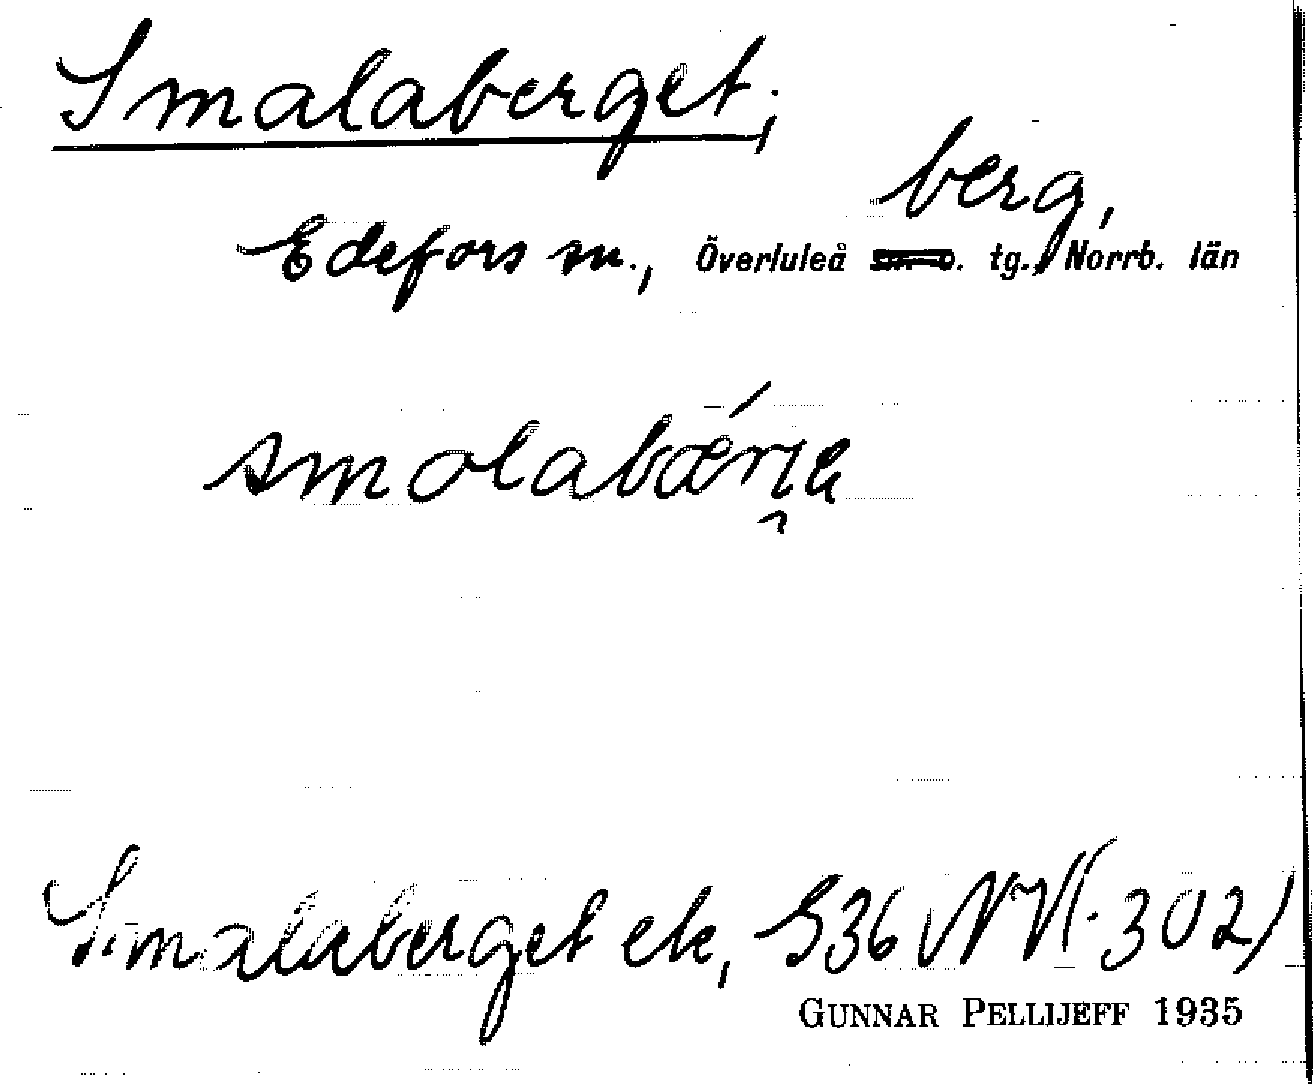 Smalaberget;
berg,
Edefors sn., Överluleå tg., Norrb. län
Smalaberget ek, S36 NV (302)
GUNNAR PELLIJEFF 1935